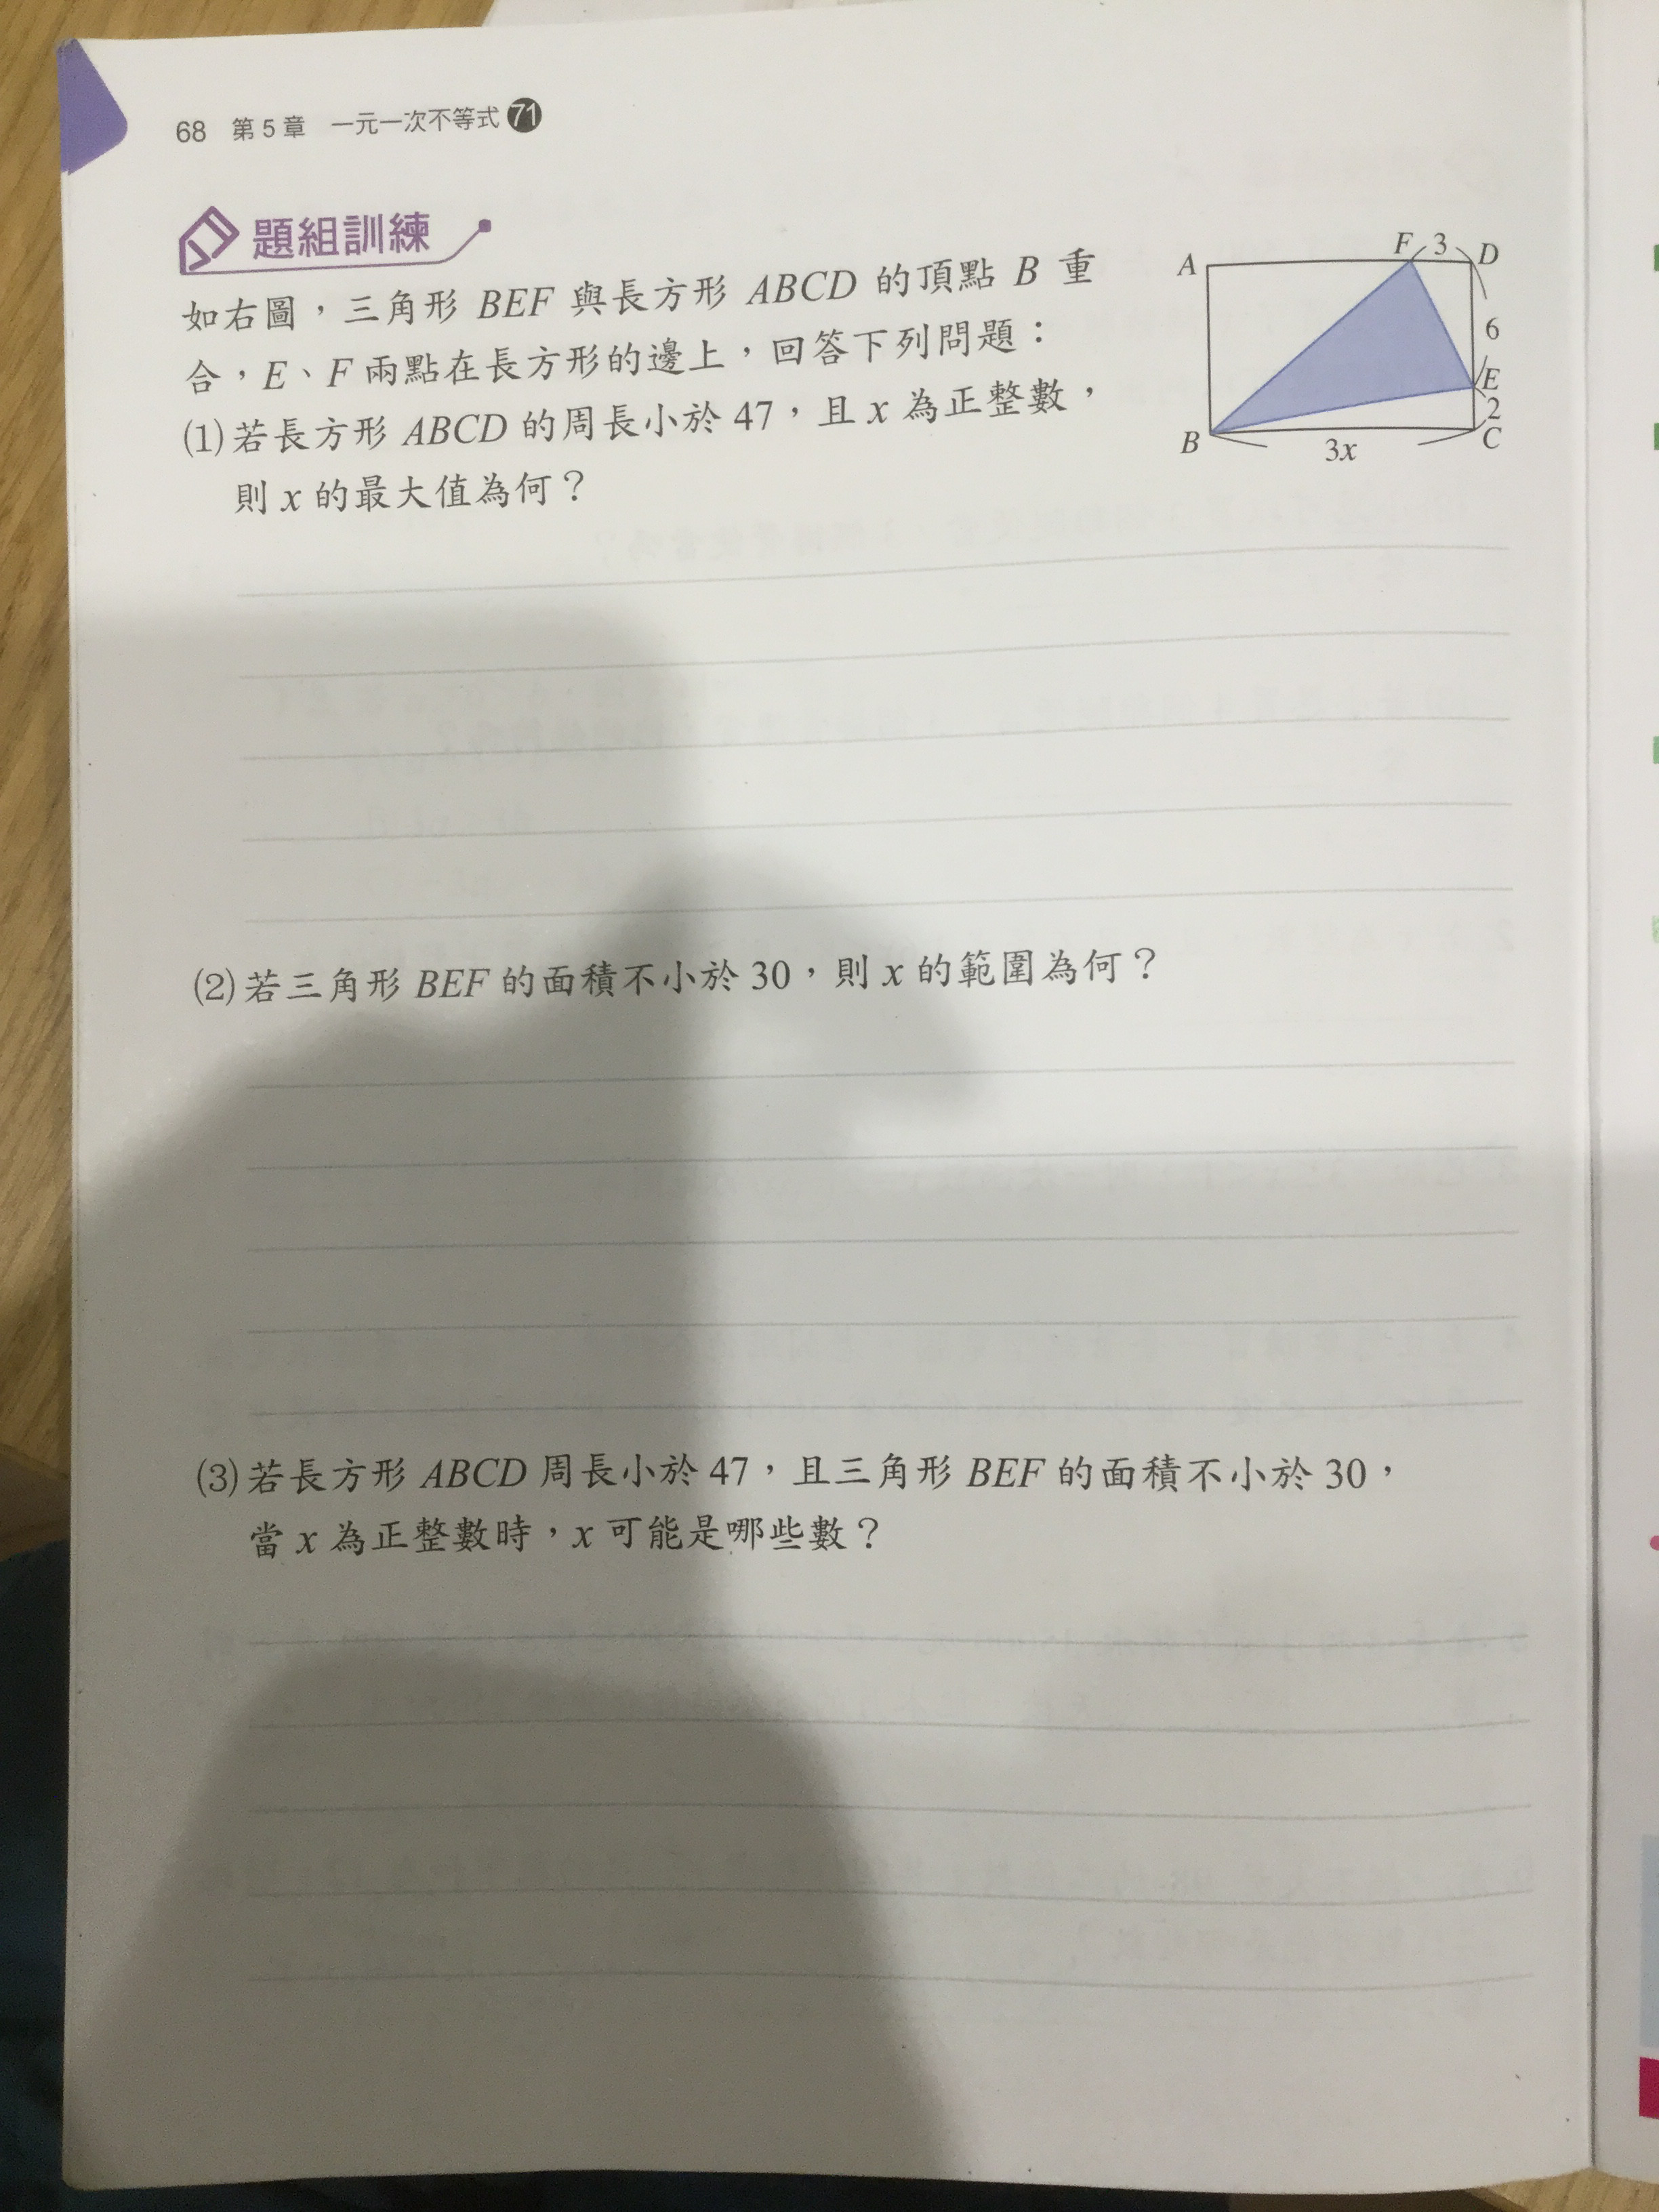 68 第5章 一元一次不等式 71
題組訓練
如右圖，三角形 BEF 與長方形 ABCD 的頂點 B 重
合，E、F 兩點在長方形的邊上，回答下列問題：
(1)若長方形 ABCD 的周長小於 47，且 x 為正整數，
則 x 的最大值為何？
A
F
3
D
6
E
2
B
3x
C
(2)若三角形 BEF 的面積不小於 30，則 x 的範圍為何？
(3)若長方形 ABCD 周長小於 47，且三角形 BEF 的面積不小於 30，
當 x 為正整數時，x 可能是哪些數？